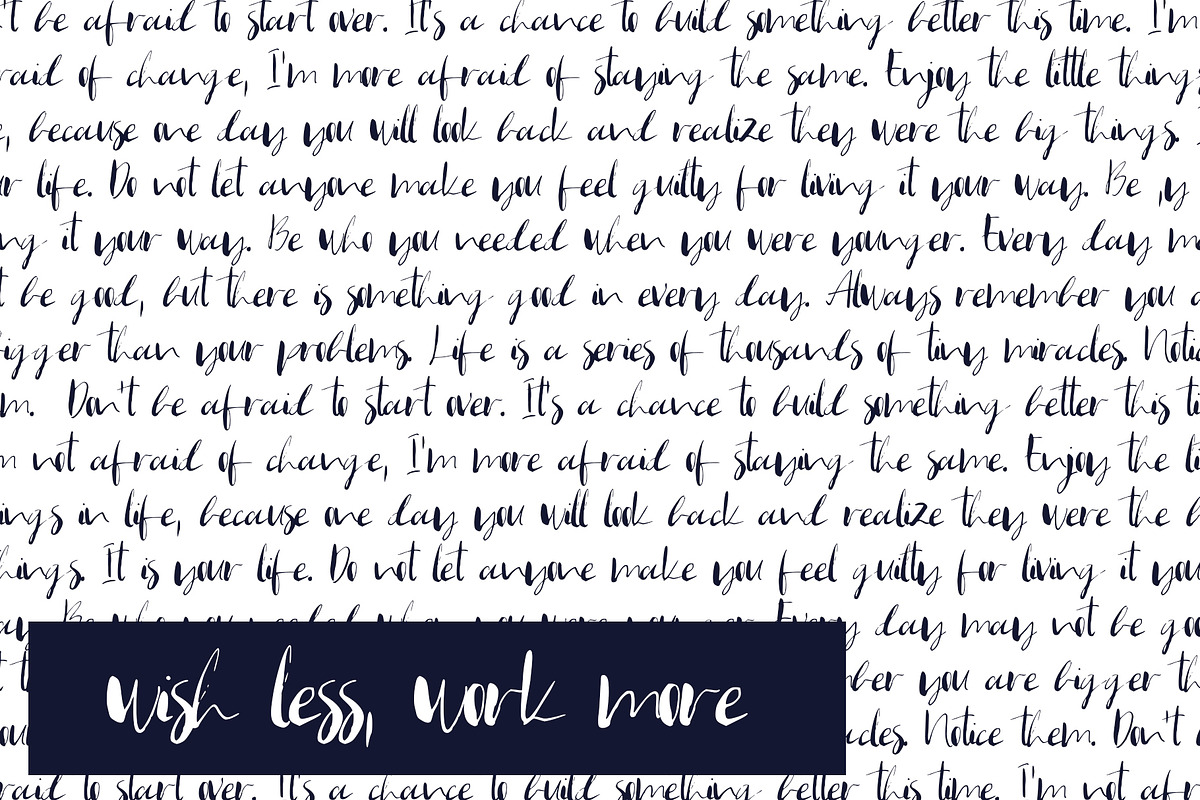 't be afraid to start over. It's a chance to build something better this time. I'm
raid of change, I'm more afraid of staying the same. Enjoy the little things
e, because one day you will look back and realize they were the big things.
ur life. Do not let anyone make you feel guilty for living it your way. Be ,y
ng it your way. Be who you needed when you were younger. Every day m
t be good, but there is something good in every day. Always remember you a
igger than your problems. Life is a series of thousands of tiny miracles. Notic
m. Don't be afraid to start over. It's a chance to build something better this ti
m not afraid of change, I'm more afraid of staying the same. Enjoy the li
ings in life, because one day you will look back and realize they were the b
hings. It is your life. Do not let anyone make you feel guilty for living it you
ay. Be who you needed when you were younger. Every day may not be goo
ber you are bigger th
wish less, work more
acles. Notice them. Don't
raid to start over. It's a chance to build something better this time. I'm not afr